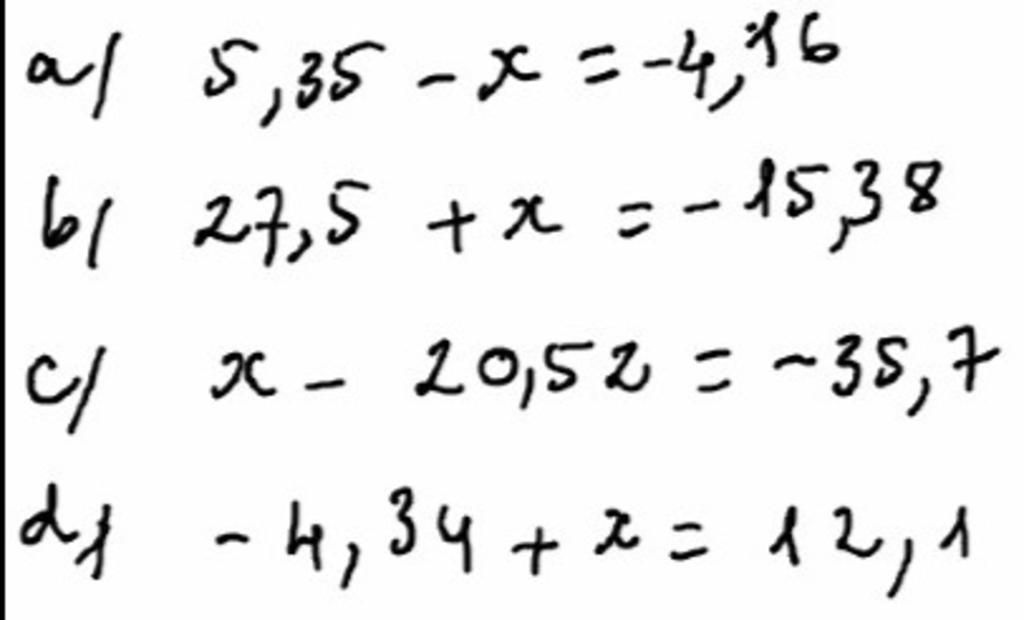 a/ 5,35 - x = -4,16
b/ 27,5 + x = - 15,38
c/ x - 20,52 = -35,7
d/ - 4,34 + x = 12,1